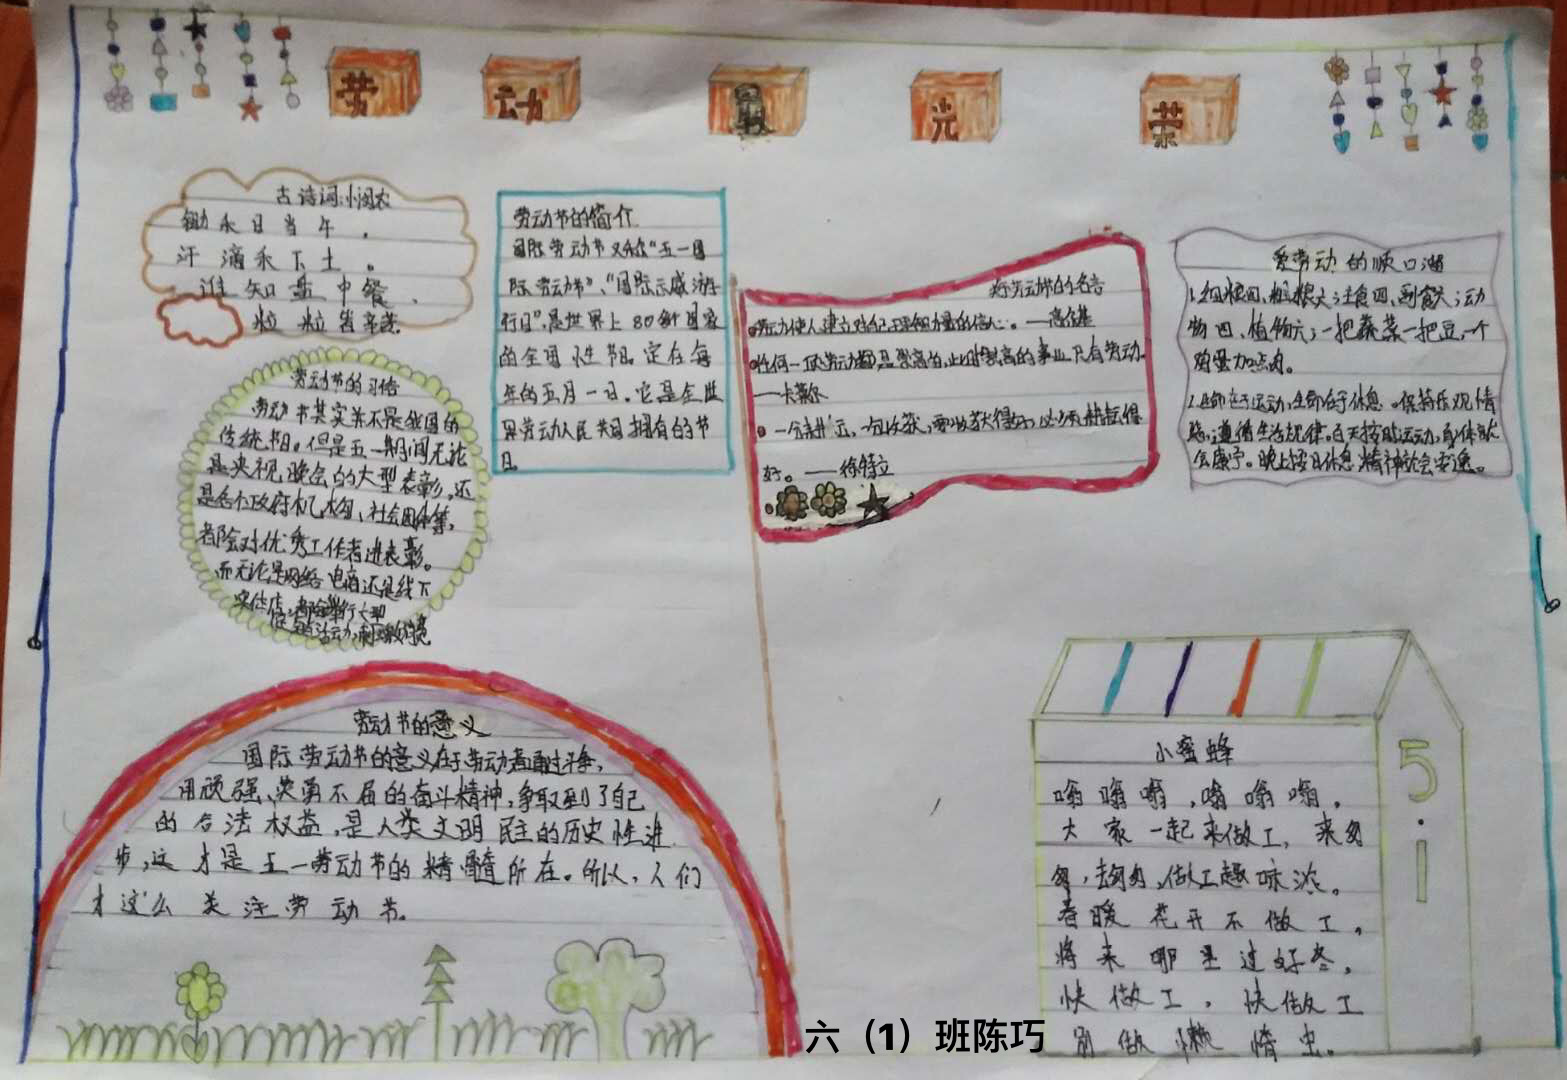 劳动最光荣
古诗词:悯农
锄禾日当午，
汗滴禾下土。
谁知盘中餐，
粒粒皆辛苦
劳动节的简介
国际劳动节又称“五一国
际劳动节”、“国际示威游
行日”,是世界上80多个国家
的全国性节日。定在每
年的五月一日。它是全世
界劳动人民共同拥有的节
日
关于劳动节的名言
劳动使人建立对自己理智力量的信心。——高尔基
任何一项劳动都是崇高的,此崇高的事业只有劳动.
——卡莱尔
一分耕耘,一分收获,要收获得好,必须耕耘得
好。——徐特立
爱劳动的顺口溜
1.细粮四、粗粮六;主食四、副食六;动
物四、植物六;一把蔬菜一把豆,一个
鸡蛋加点肉。
2.生命在于运动,生命在于休息。保持乐观情
绪,遵循生活规律。白天按时运动,身体就
会康宁。晚上按日休息,精神就会安逸。
劳动节的习俗
劳动节其实并不是我国的
传统节日。但是五一期间无论
是央视晚会的大型表彰,还
是各个政府机构、社会团体等,
都会对优秀工作者进表彰。
而无论是网络电商还是线下
实体店,都会举行大型
促销活动,刺激消费
劳动节的意义
国际劳动节的意义在于劳动者通过斗争,
用顽强、英勇不屈的奋斗精神,争取到了自己
的合法权益,是人类文明民主的历史性进
步,这才是五一劳动节的精髓所在。所以,人们
才这么关注劳动节。
5·1
小蜜蜂
嗡嗡嗡,嗡嗡嗡,
大家一起来做工,来匆
匆,去匆匆,做工趣味浓。
春暖花开不做工,
将来哪里过好冬,
快做工,快做工
别做懒惰虫。
六（1）班陈巧